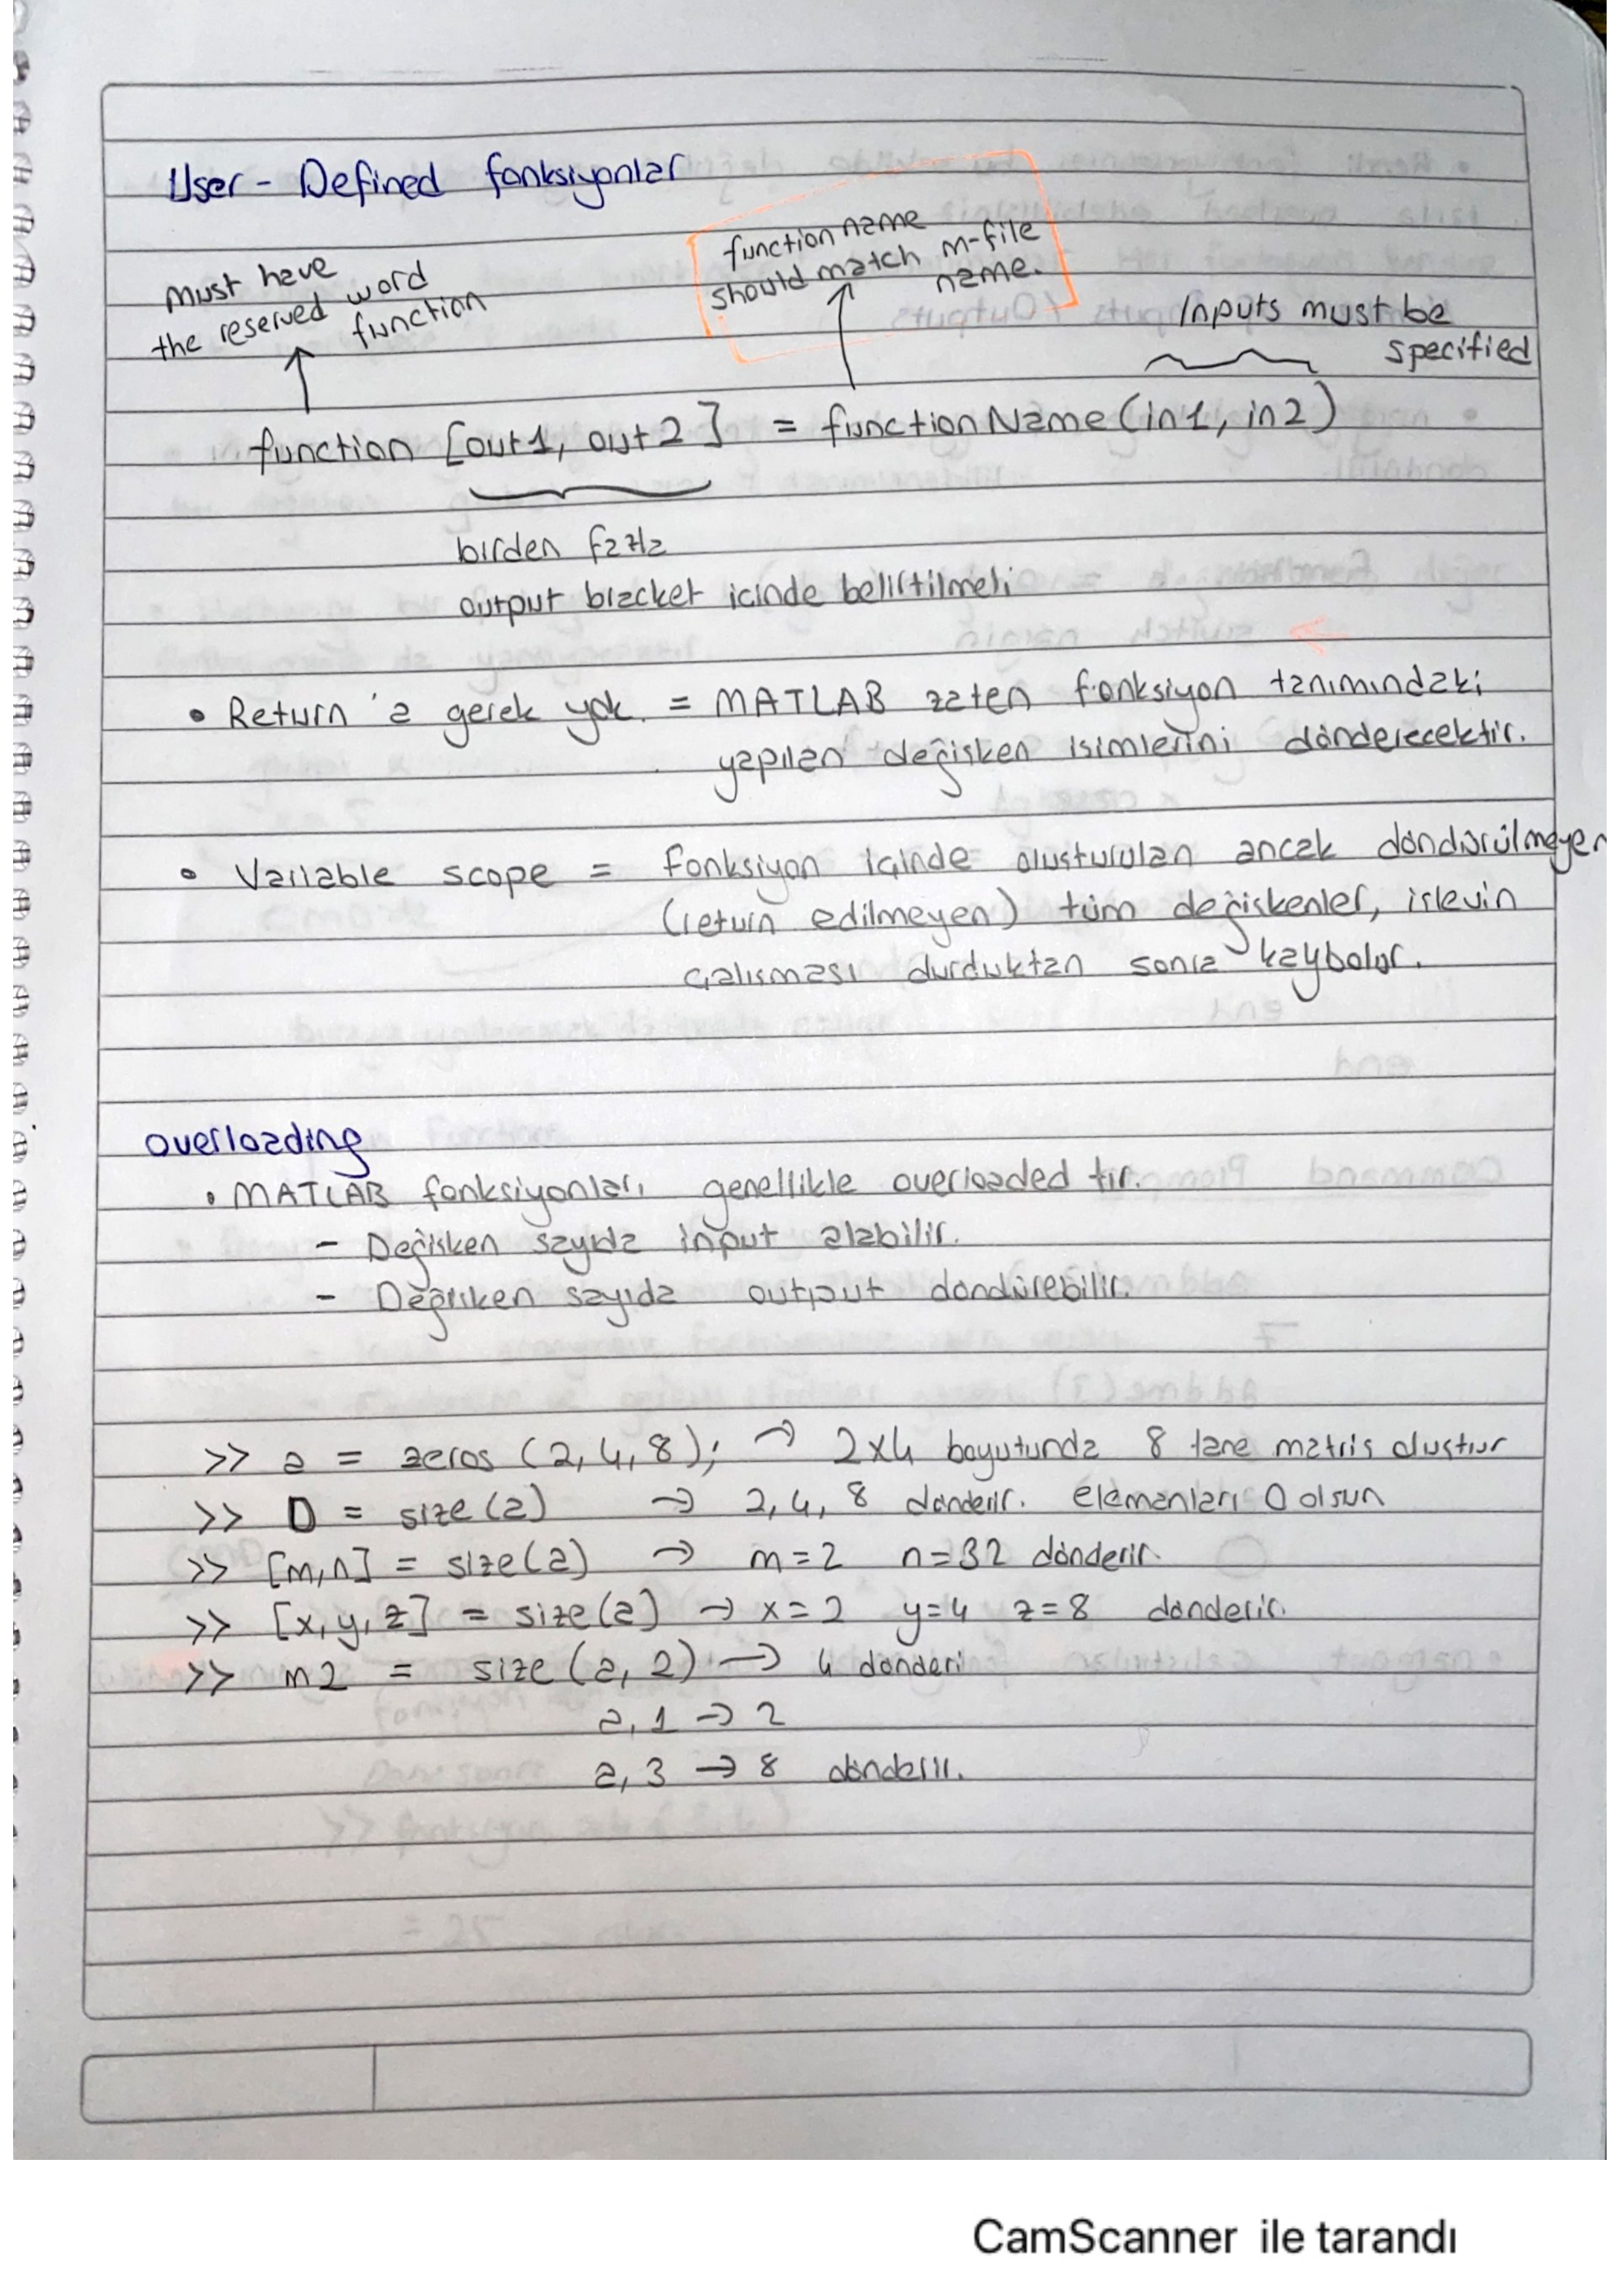 User - Defined fonksiyonlar
must have
the reserved word
function
function name
should match m-file
name.
Inputs must be
specified
function [out1, out2] = functionName(in1, in2)
birden fazla
output bracket icinde belirtilmeli
• Return 'a gerek yok. = MATLAB zaten fonksiyon tanımındaki
yapılan değisken isimlerini dönderecektir.
• Variable scope = Fonksiyon içinde olusturulan ancak döndürülmeyen
(return edilmeyen) tüm değiskenler, islevin
çalısması durduktan sonra kaybolur.
overloading
• MATLAB fonksiyonları genellikle overloaded tır.
- Değisken sayıda input alabilir.
- Değisken sayıda output dondürebilir.
>> a = zeros (2,4,8); → 2x4 boyutunda 8 tane matris olustur
>> D = size(a) → 2,4,8 dönderir. elemanları 0 olsun
>> [m,n] = size(a) → m=2 n=32 dönderir.
>> [x,y,z] = size(a) → x=2 y=4 z=8 dönderir.
>> m2 = size (a, 2) → 4 dönderi
a, 1 → 2
a, 3 → 8 dönderir.
CamScanner ile tarandı